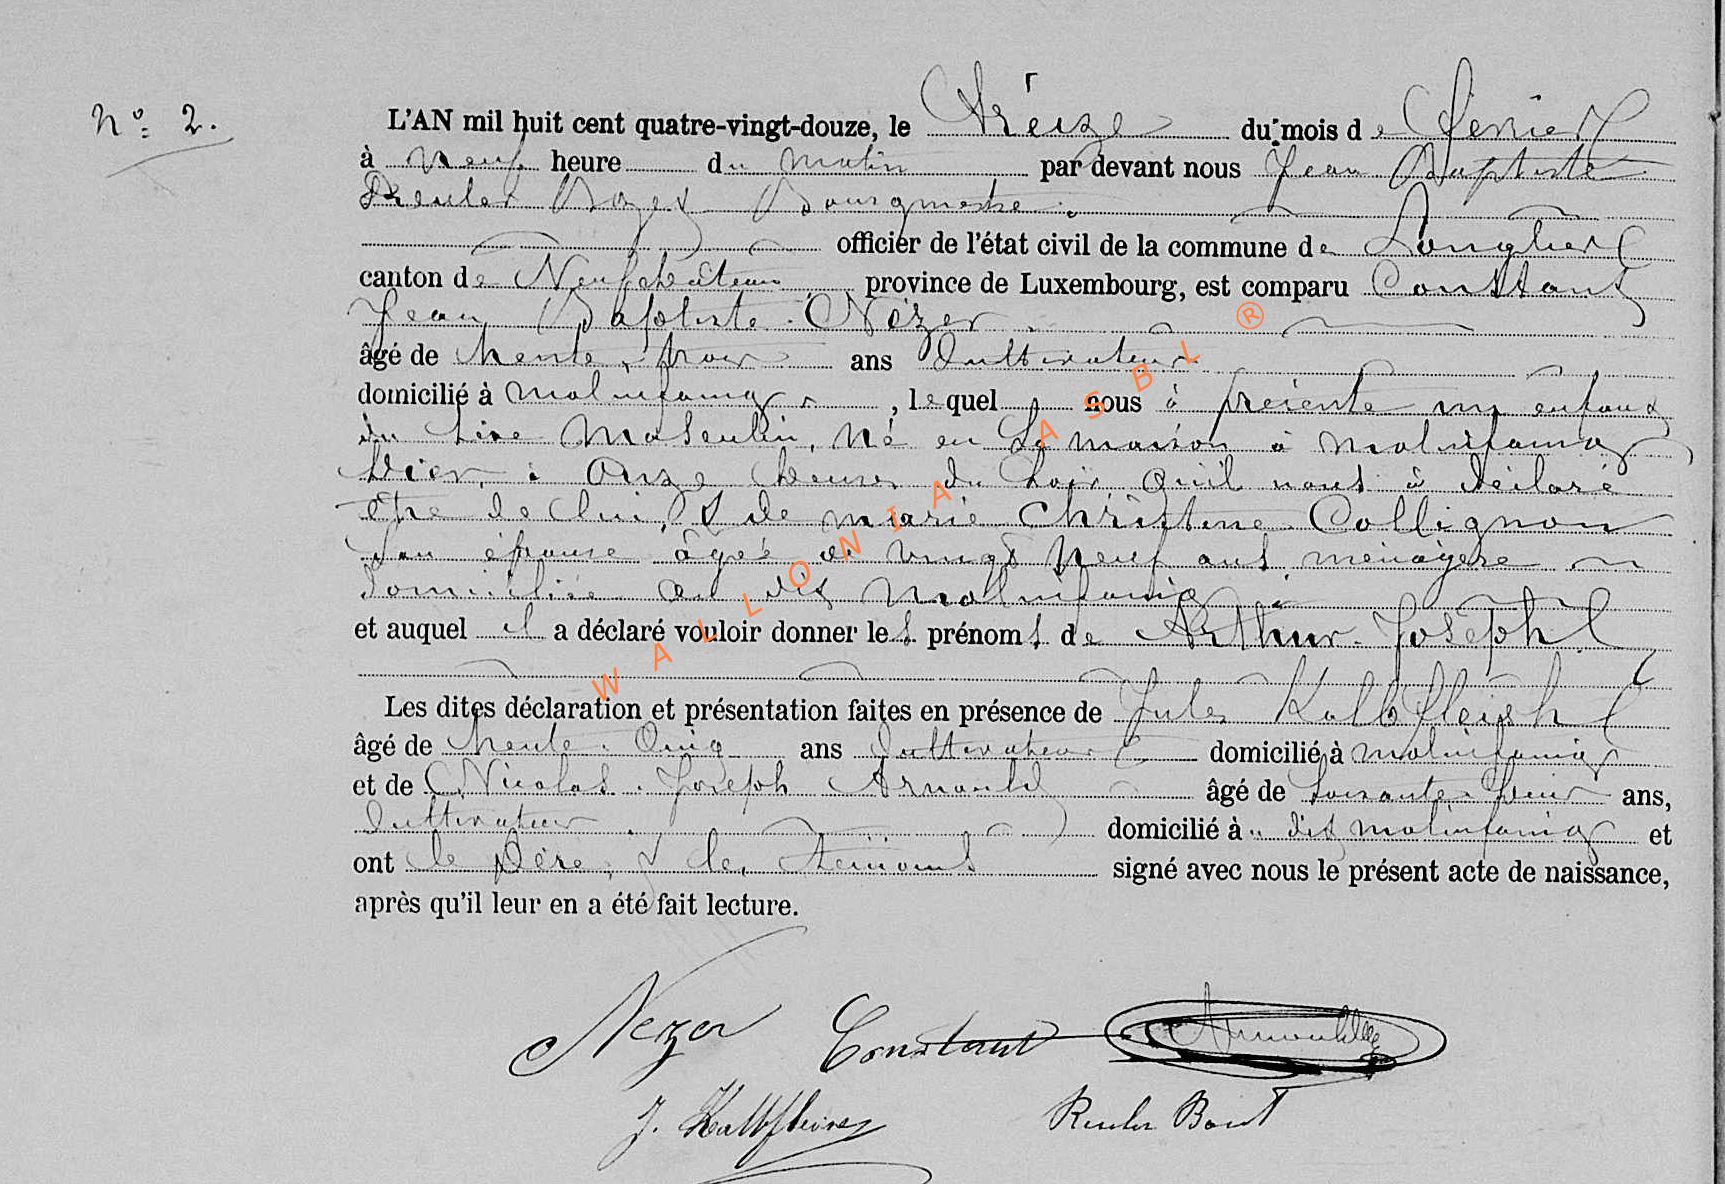 N° 2.
L'AN mil huit cent quatre-vingt-douze, le Treize du mois de Fevrier
à neuf heure du matin par devant nous Jean Baptiste
Reuler Bourgmestre.
officier de l'état civil de la commune de Longlier
canton de Neufchâteau province de Luxembourg, est comparu Constant
Jean Baptiste Nézer
âgé de trente trois ans Cultivateur
domicilié à Molinfaing, lequel nous à présenté un enfant
du sexe Masculin, né en Sa maison à Molinfaing
hier à Onze heures du Soir, qu'il nous à déclaré
être de lui, & de Marie Christine Collignon
Son épouse âgée de vingt neuf ans ménagère
domiciliée au dit Molinfaing
et auquel il a déclaré vouloir donner les prénoms de Arthur Joseph
Les dites déclaration et présentation faites en présence de Jules Kalbfleisch
âgé de trente Cinq ans Cultivateur domicilié à Molinfaing
et de Nicolas Joseph Arnould âgé de Soixante deux ans,
Cultivateur domicilié au dit Molinfaing et
ont le Père, & les témoins signé avec nous le présent acte de naissance,
après qu'il leur en a été fait lecture.
Nezer Constant Arnould
J. Kalbfleisch Reuler
WALLONIA ASBL ®